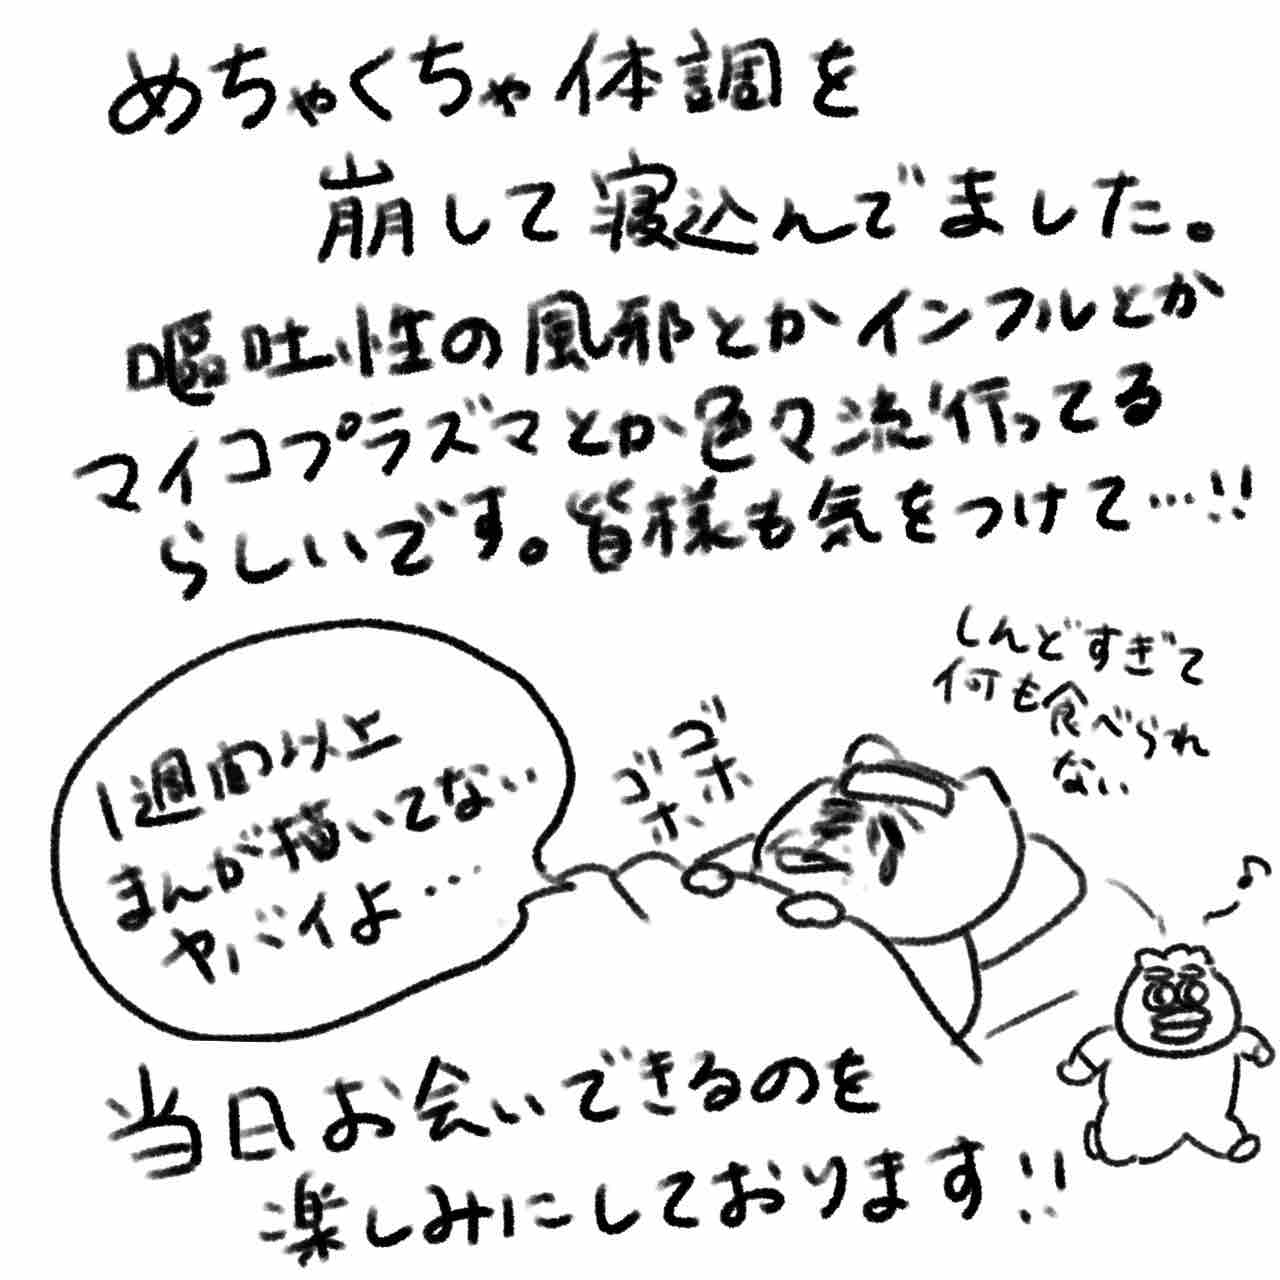 めちゃくちゃ体調を
崩して寝込んでました。
嘔吐性の風邪とかインフルとか
マイコプラズマとか色々流行ってる
らしいです。皆様も気をつけて…!!
しんどすぎて
何も食べられ
ない
ゴホ
ゴホ
1週間以上
まんが描いてない
ヤバイよ…
当日お会いできるのを
楽しみにしております!!